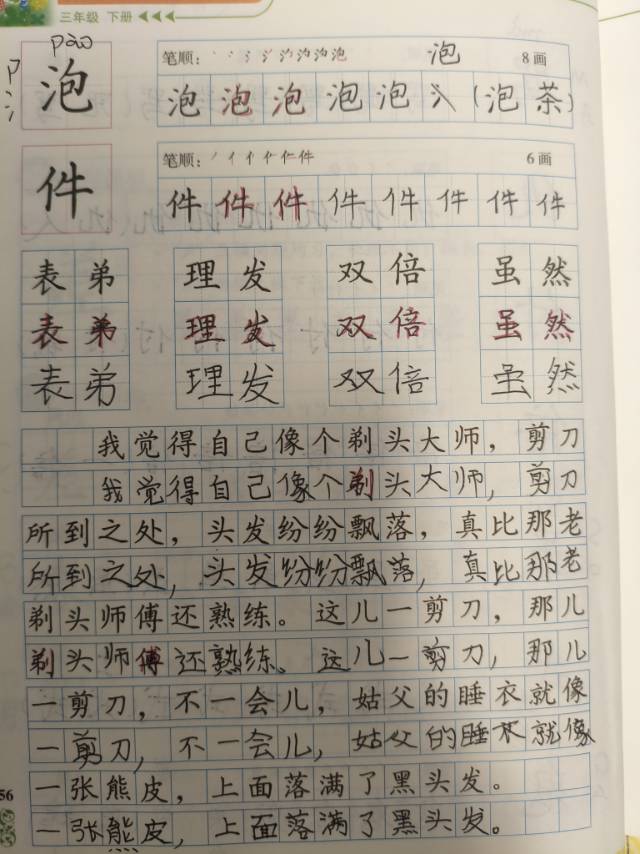 三年级 下册
pào
泡
笔顺： 泡 8画
泡 泡 泡 泡 泡 （泡 茶）
件
笔顺： 6画
件 件 件 件 件 件 件 件
表弟 理发 双倍 虽然
表弟 理发 双倍 虽然
表弟 理发 双倍 虽然
我觉得自己像个剃头大师，剪刀
我觉得自己像个剃头大师，剪刀
所到之处，头发纷纷飘落，真比那老
所到之处，头发纷纷飘落，真比那老
剃头师傅还熟练。这儿一剪刀，那儿
剃头师傅还熟练。这儿一剪刀，那儿
一剪刀，不一会儿，姑父的睡衣就像
一剪刀，不一会儿，姑父的睡衣就像
一张熊皮，上面落满了黑头发。
一张熊皮，上面落满了黑头发。
56